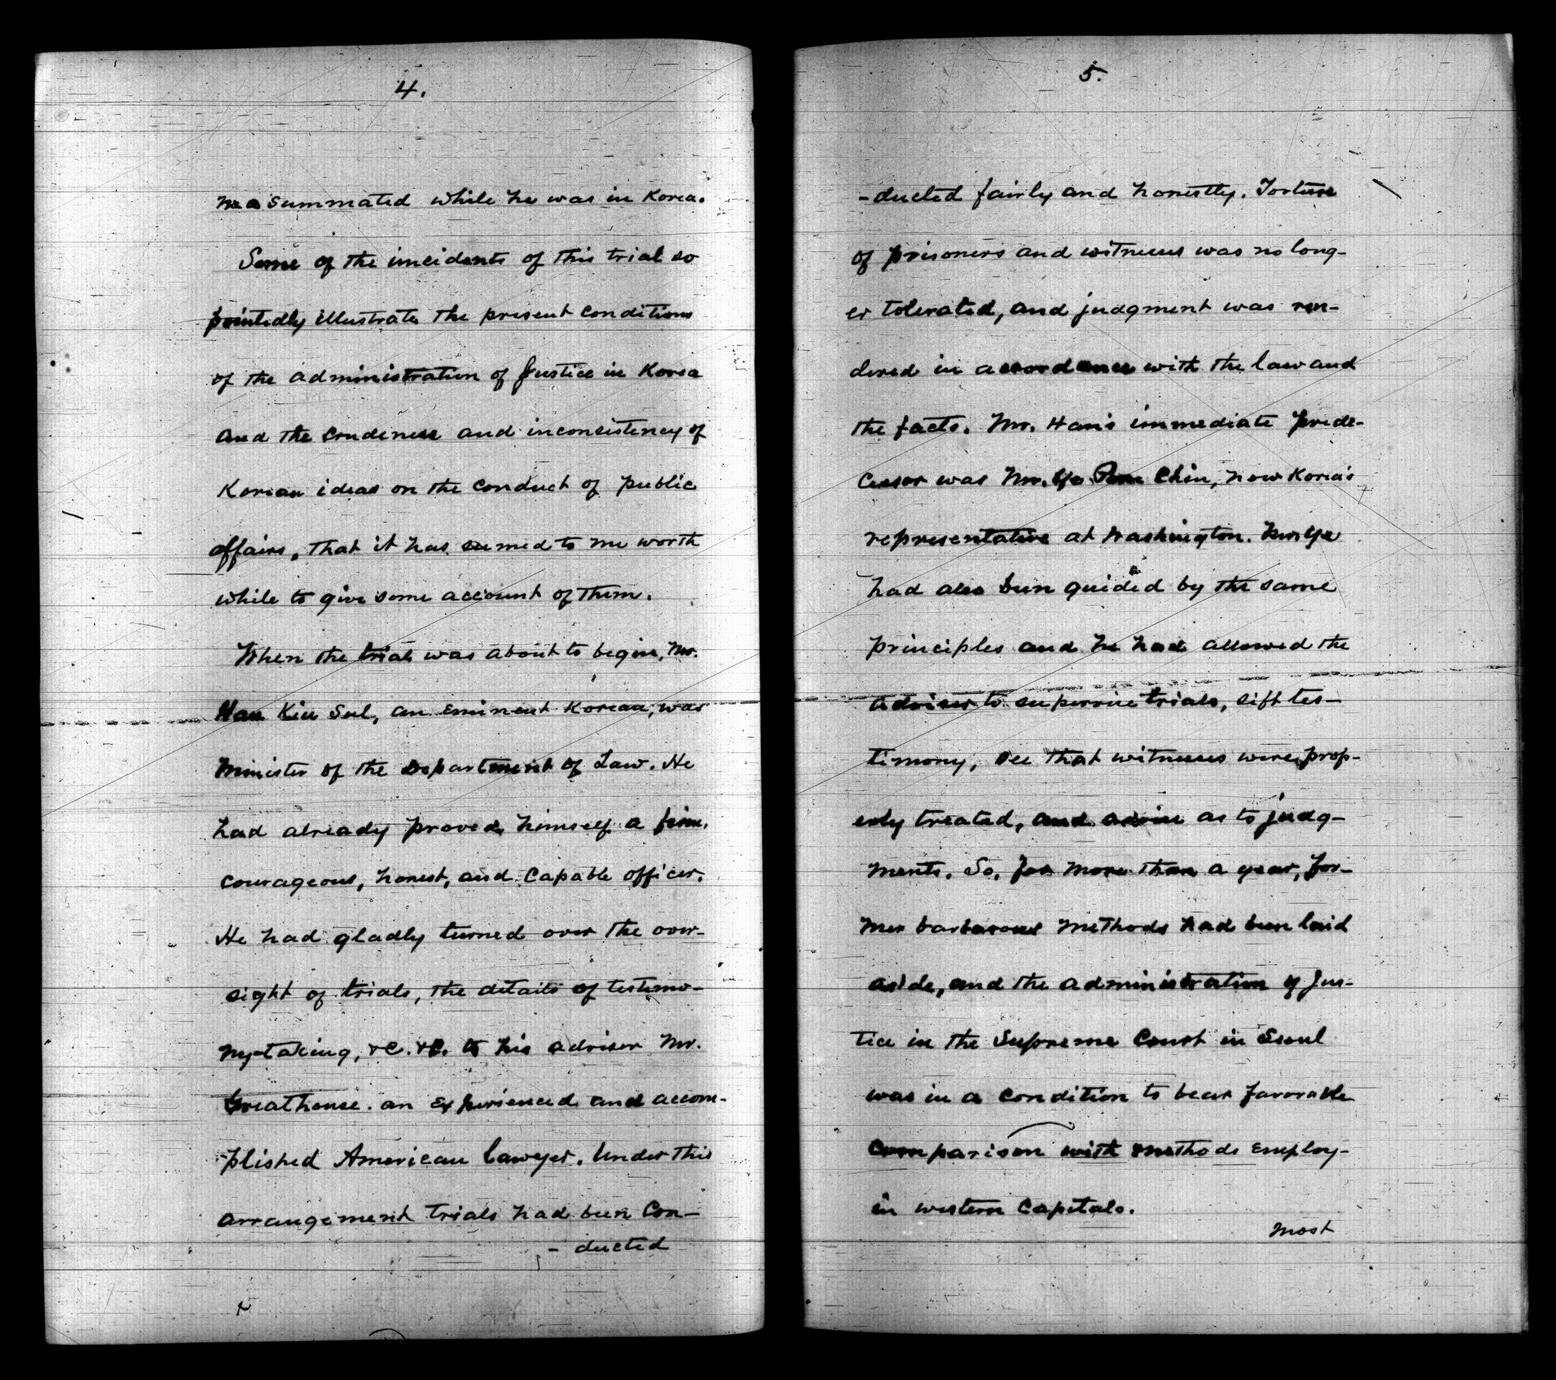 4.
summated while he was in Korea.
Some of the incidents of this trial so
pointedly illustrate the present conditions
of the administration of Justice in Korea
and the crudeness and inconsistency of
Korean ideas on the conduct of public
affairs, that it has seemed to me worth
while to give some account of them.
When the trial was about to begin, Mr.
Han Kiu Sul, an eminent Korean, was
Minister of the Department of Law. He
had already proved himself a firm,
courageous, honest, and capable officer.
He had gladly turned over the over-
sight of trials, the details of testimo-
ny-taking, &c. &c. to his adviser Mr.
Greathouse. an experienced and accom-
plished American lawyer. Under this
arrangement trials had been con-
- ducted
5.
-ducted fairly and honestly. Torture
of prisoners and witnesses was no long-
er tolerated, and judgment was ren-
dered in accordance with the law and
the facts. Mr. Han's immediate prede-
cessor was Mr. Ye Pom Chin, now Korea's
representative at Washington. Mr. Ye
had also been guided by the same
principles and he had allowed the
adviser to supervise trials, sift tes-
timony, see that witnesses were prop-
erly treated, and advise as to judg-
ments. So, for more than a year, for-
mer barbarous methods had been laid
aside, and the administration of jus-
tice in the Supreme Court in Seoul
was in a condition to bear favorable
comparison with methods employ-
in western Capitals.
Most